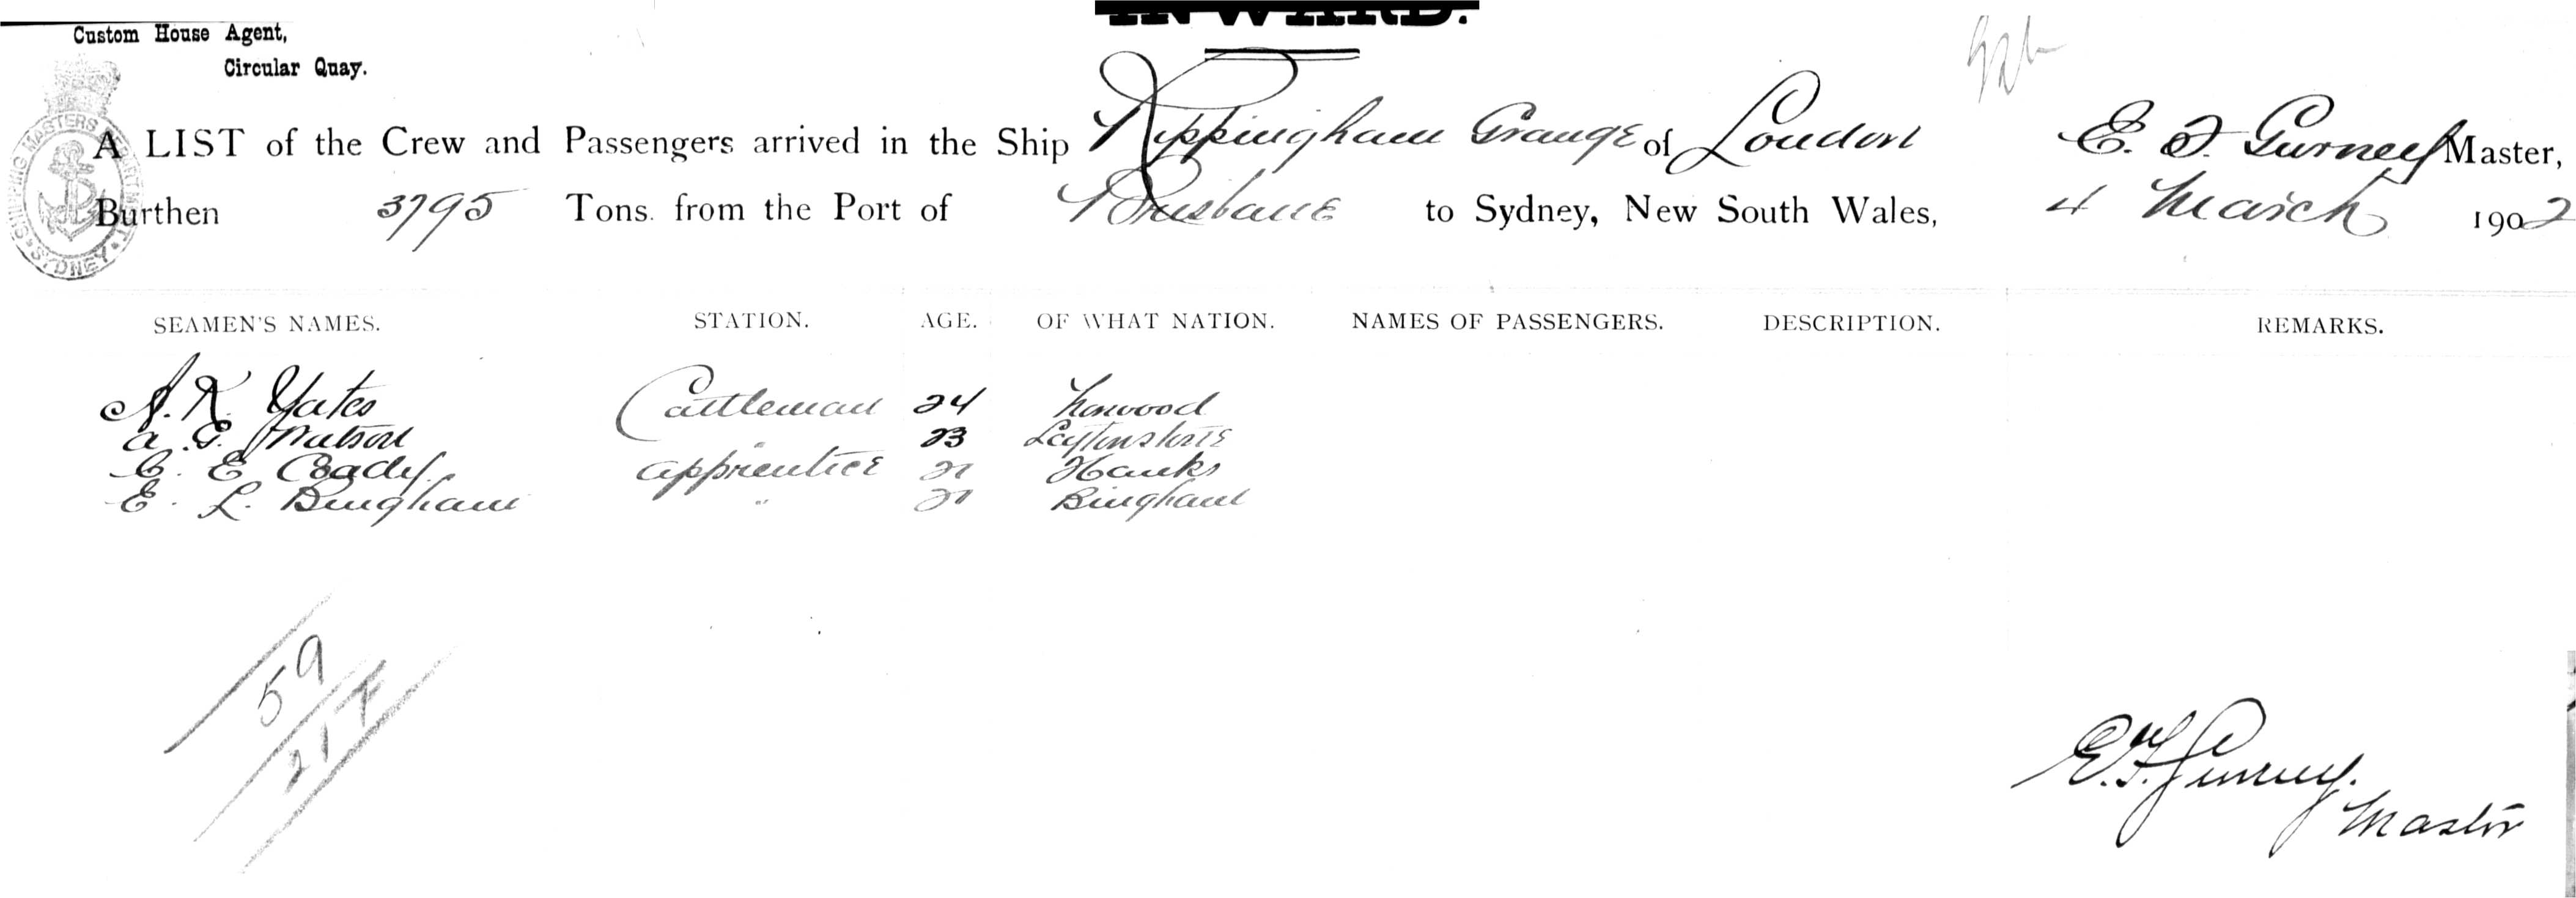 INWARD.
Custom House Agent,
Circular Quay.
SHIPPING MASTERS DEPARTMENT SYDNEY
A LIST of the Crew and Passengers arrived in the Ship Rippingham Grange of London E. F. Gurney Master,
Burthen 3795 Tons from the Port of Brisbane to Sydney, New South Wales, 4 March 1902
SEAMEN'S NAMES. STATION. AGE. OF WHAT NATION. NAMES OF PASSENGERS. DESCRIPTION. REMARKS.
A. K. Yates Cattleman 24 Norwood
A. G. Watson " 23 Leytonstone
C. E. Eady apprentice 21 Hanks
E. L. Bingham " 21 Bingham
59
217
E. F. Gurney.
Master